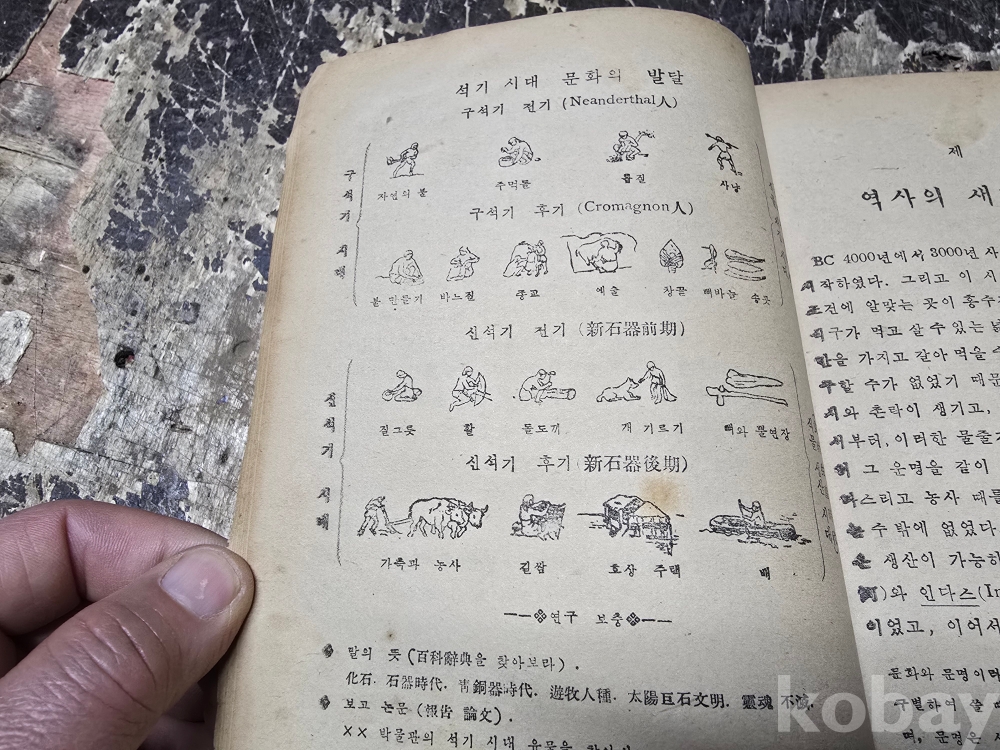 석기 시대 문화의 발달
구석기 전기 (Neanderthal人)
구석기 시대
자연의 불 주먹돌 톱질 사냥
구석기 후기 (Cromagnon人)
불 만들기 바느질 종교 예술 창끝 뼈바늘 송곳
신석기 전기 (新石器前期)
신석기 시대
질그릇 활 돌도끼 개 기르기 뼈와 뿔연장
신석기 후기 (新石器後期)
가축과 농사 길쌈 호상 주택 배
연구 보충
말의 뜻 (百科辭典을 찾아보라).
化石. 石器時代. 靑銅器時代. 遊牧人種. 太陽巨石文明. 靈魂 不滅.
보고 논문 (報告 論文).
×× 박물관의 석기 시대 유물을
제
역사의 새
BC 4000년에서 3000년 사
시작하였다. 그리고 이 시
조건에 알맞는 곳이 홍수
식구가 먹고 살 수 있는 넓
만을 가지고 갈아 먹을 수
구할 수가 없었기 때문
시와 촌락이 생기고,
서부터, 이러한 물줄
어 그 운명을 같이
다스리고 농사 때를
는 수 밖에 없었다.
은 생산이 가능하
)와 인다즈(In
이었고, 이어서
문화와 문명이
구별하여 쓸 때
며, 문명은
kobay